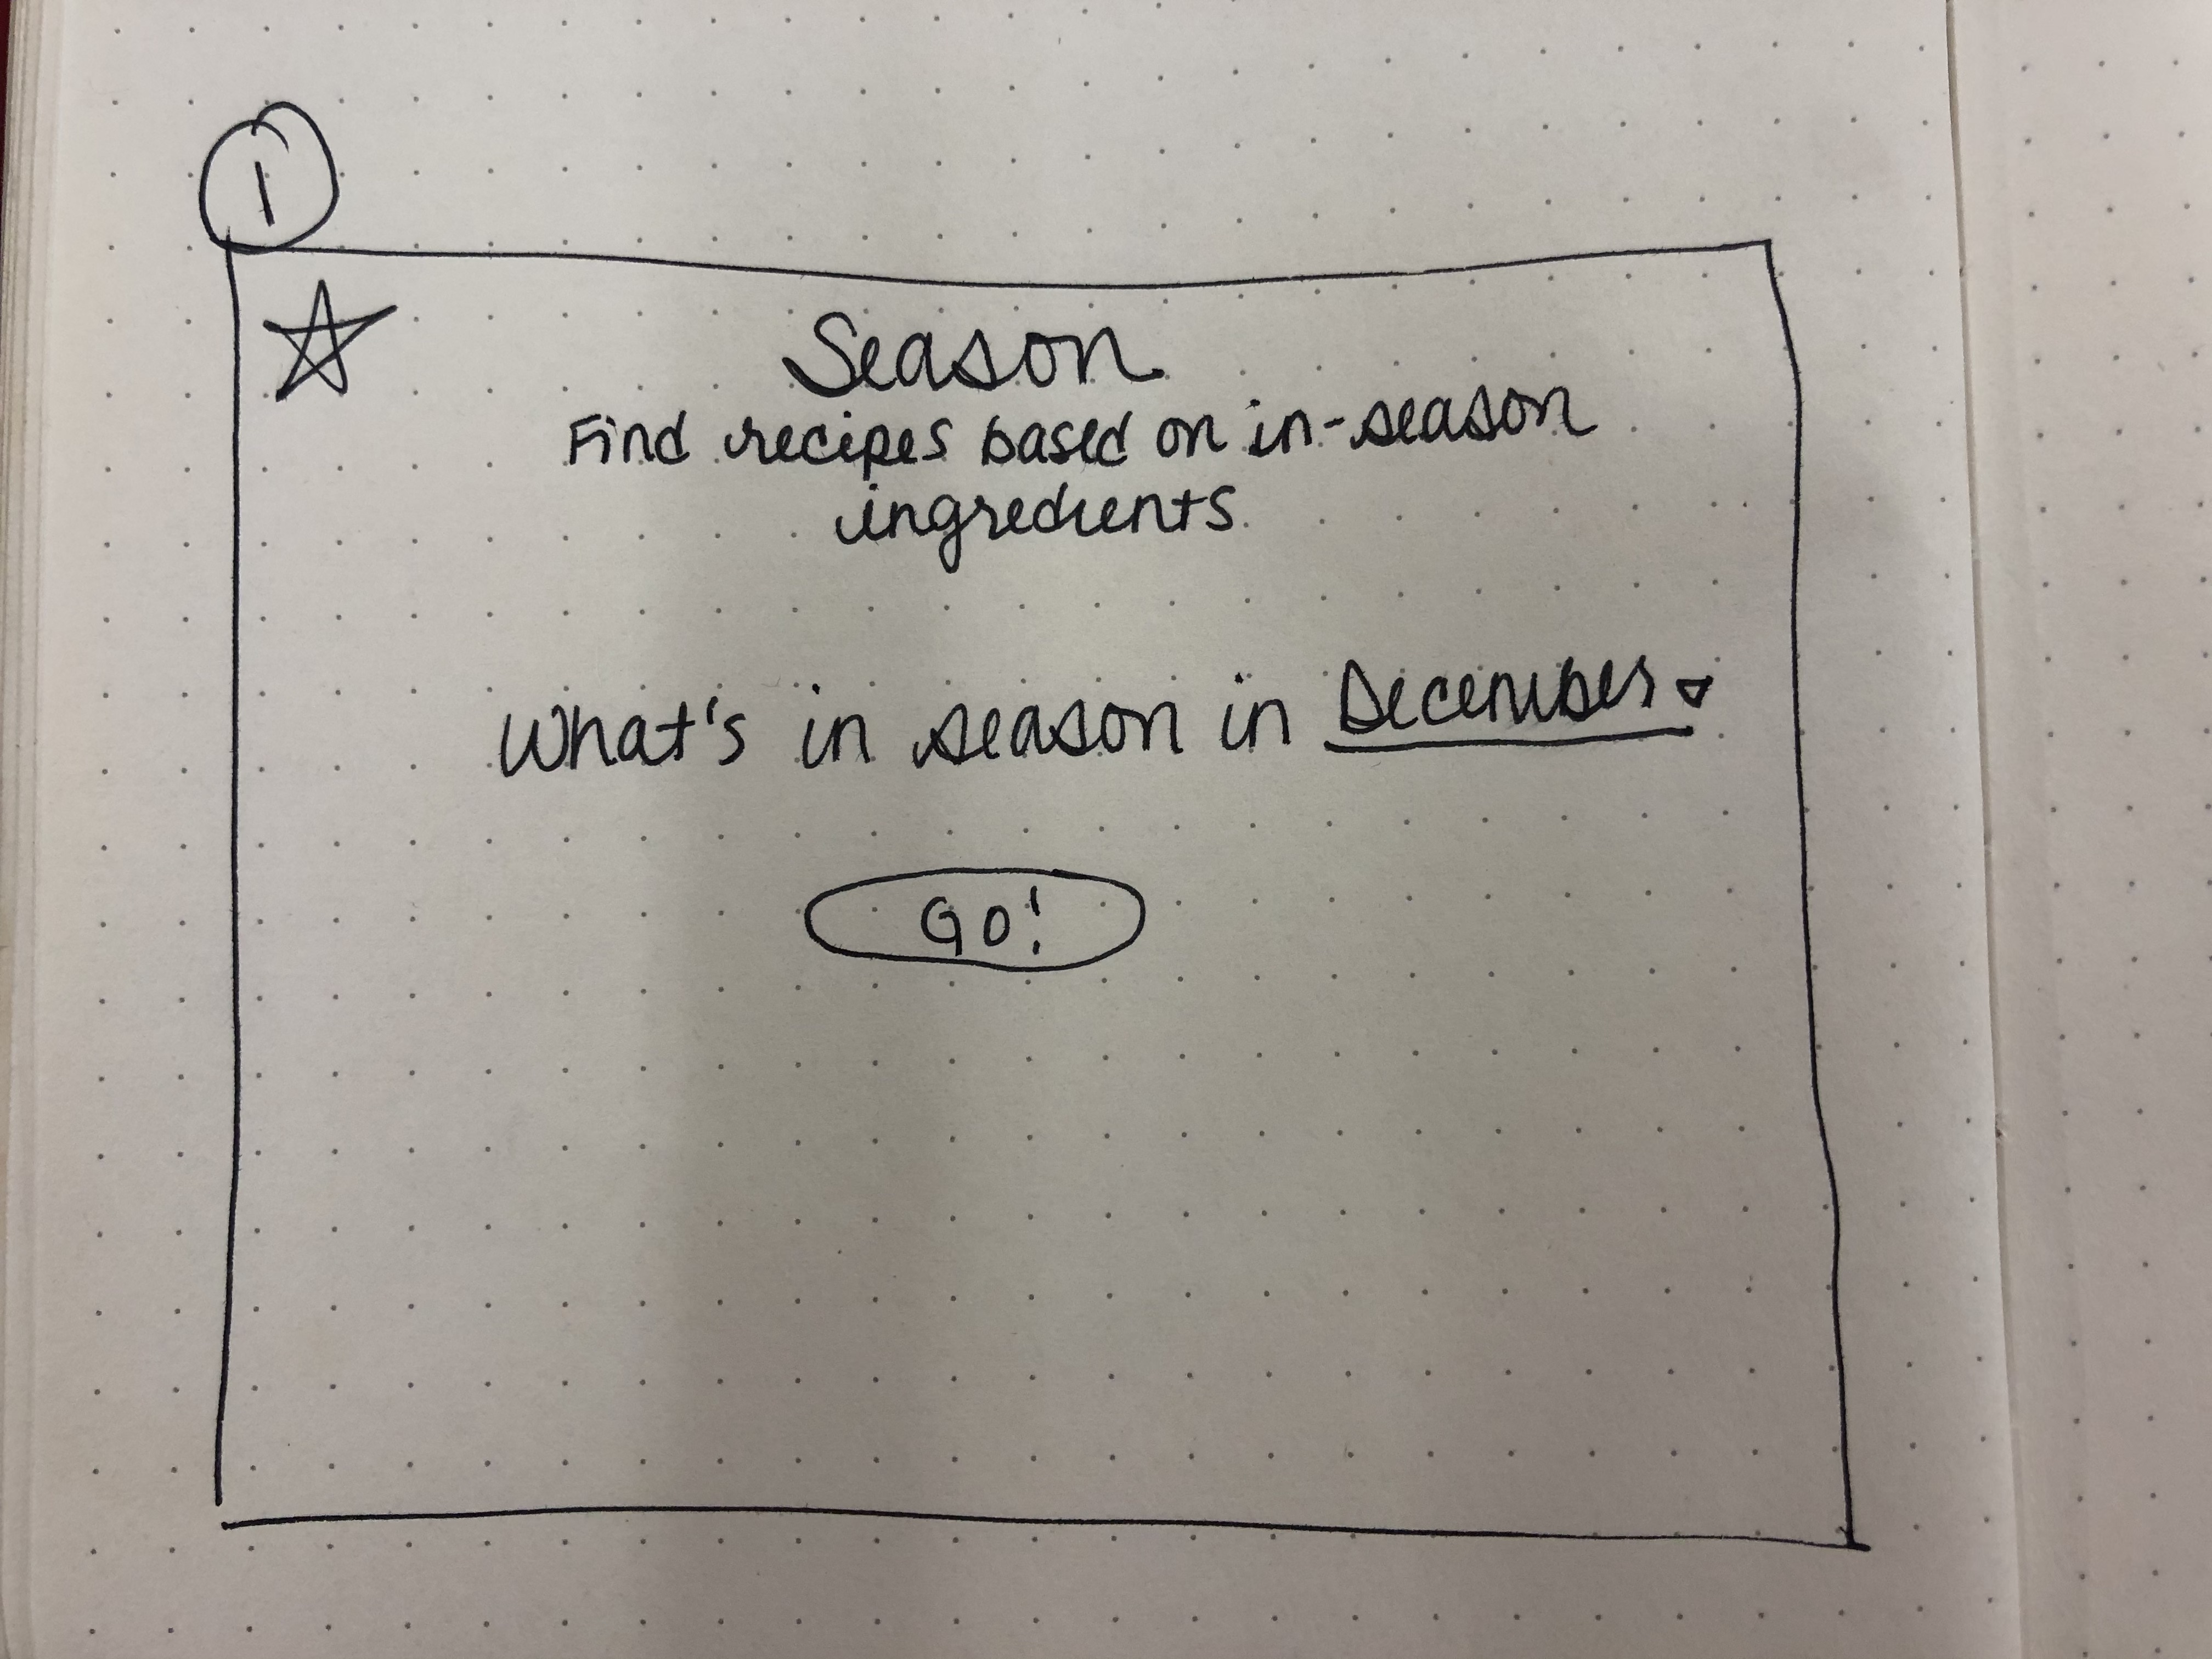 1
Season
Find recipes based on in-season
ingredients
What's in season in December
GO!